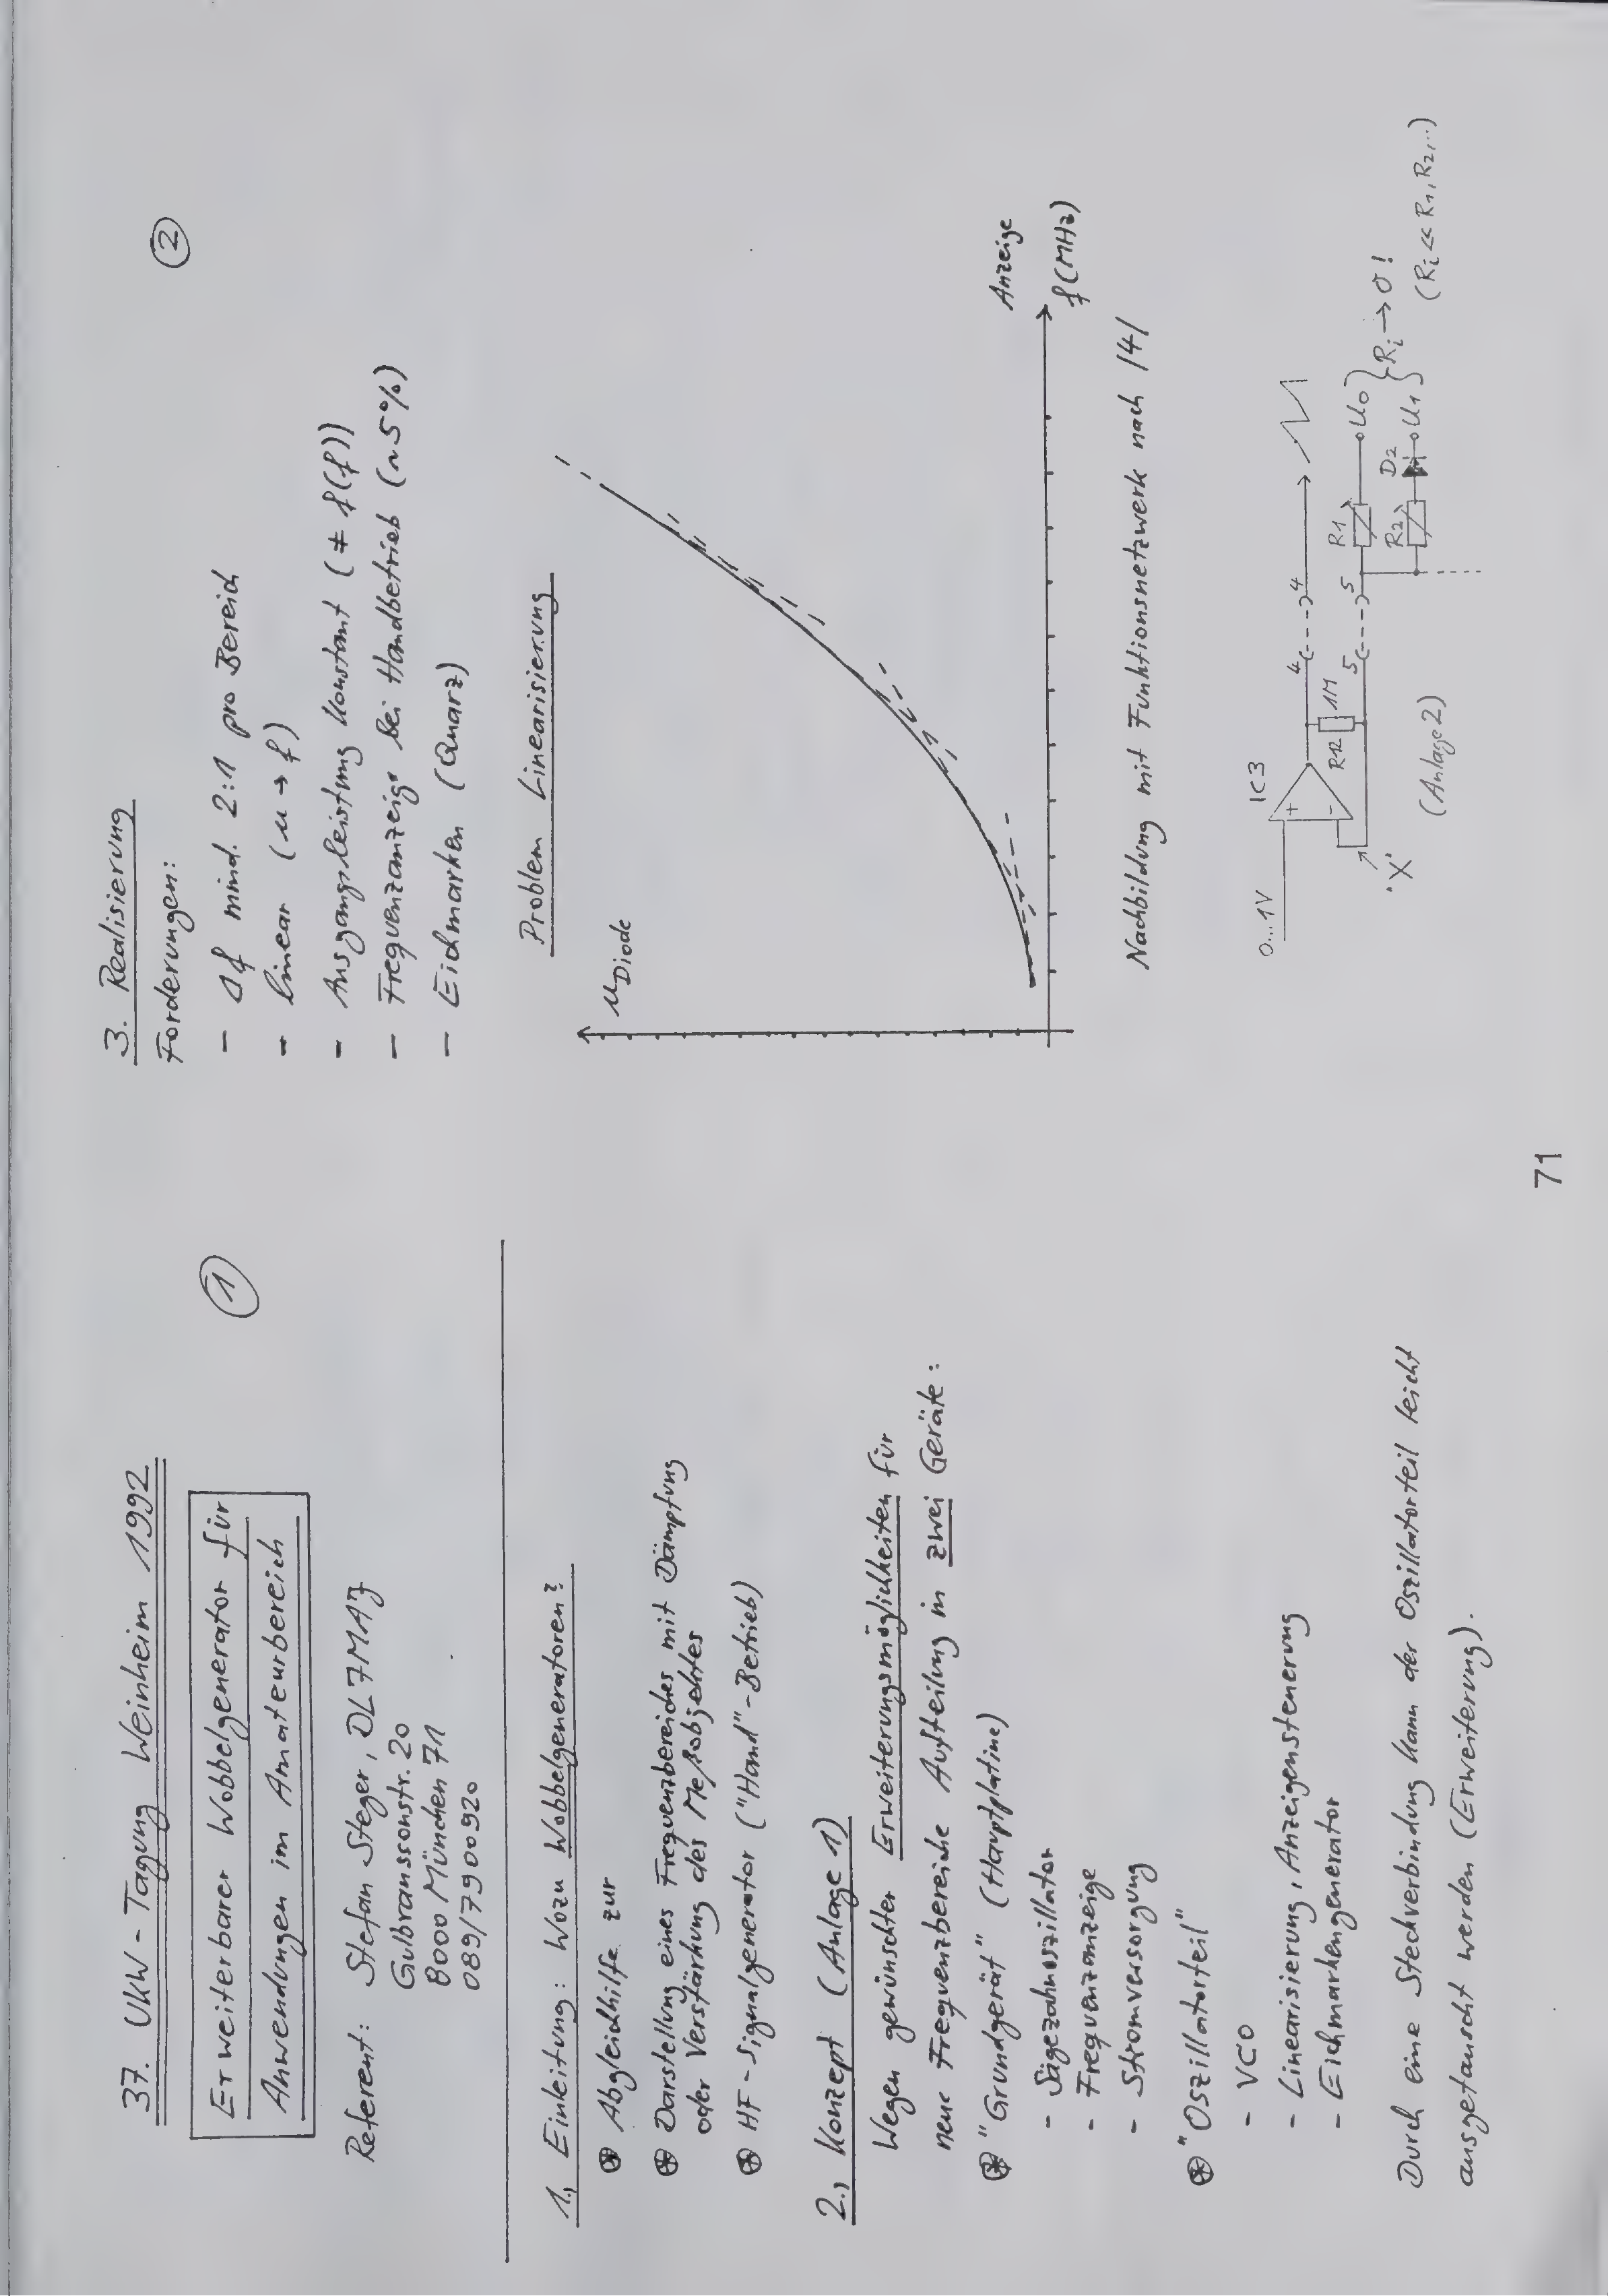 37. UKW-Tagung Weinheim 1992
①
Erweiterbarer Wobbelgenerator für
Anwendungen im Amateurbereich
Referent: Stefan Steger, DL7MAJ
Gulbranssonstr. 20
8000 München 71
089/7900920
1., Einleitung: Wozu Wobbelgeneratoren?
⊛ Abgleichhilfe zur
⊛ Darstellung eines Frequenzbereiches mit Dämpfung
oder Verstärkung des Meßobjektes
⊛ HF-Signalgenerator ("Hand"-Betrieb)
2., Konzept (Anlage 1)
Wegen gewünschter Erweiterungsmöglichkeiten für
neue Frequenzbereiche Aufteilung in zwei Geräte:
⊛ "Grundgerät" (Hauptplatine)
- Sägezahnoszillator
- Frequenzanzeige
- Stromversorgung
⊛ "Oszillatorteil"
- VCO
- Linearisierung, Anzeigensteuerung
- Eichmarkengenerator
Durch eine Steckverbindung kann der Oszillatorteil leicht
ausgetauscht werden (Erweiterung).
②
3. Realisierung
Forderungen:
- Δf mind. 2:1 pro Bereich
- linear (u → f)
- Ausgangsleistung konstant (≠ f(f))
- Frequenzanzeige bei Handbetrieb (~5%)
- Eichmarken (Quarz)
Problem Linearisierung
u Diode
Anzeige
f (MHz)
Nachbildung mit Funktionsnetzwerk nach /4/
0...1V
IC3
+
-
R12
1M
'X'
4
4
5
5
R1
U0
R2
D2
U1
Ri → 0!
(Ri << R1, R2, ..)
(Anlage 2)
71